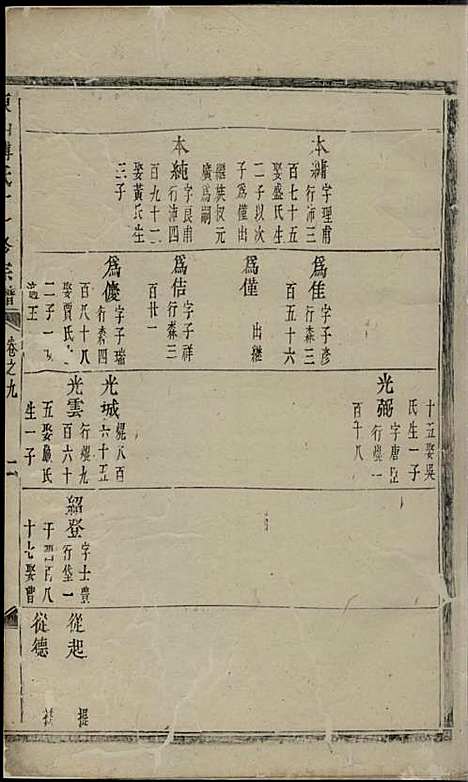 本繡字理甫
行沛三
百七十五
娶盛氏生
二子以次
子爲僅出
繼族叔元
廣爲嗣
本純字良甫
行沛四
百九十二
娶黃氏生
三子
爲佳字子彥
行森三
百五十六
爲僅
出繼
爲佶字子祥
行森三
百廿一
爲優字子瑞
行森四
百八十八
娶賈氏
二子一
適王
十五娶吳
氏生一子
光弼字唐臣
行焜一
百千八
光城焜八百
六十五
光雲行焜九
百六十
五娶嚴氏
生一子
紹登字士豊
行垡一
千百八
十七娶曹
從起
提
從德
卷之九